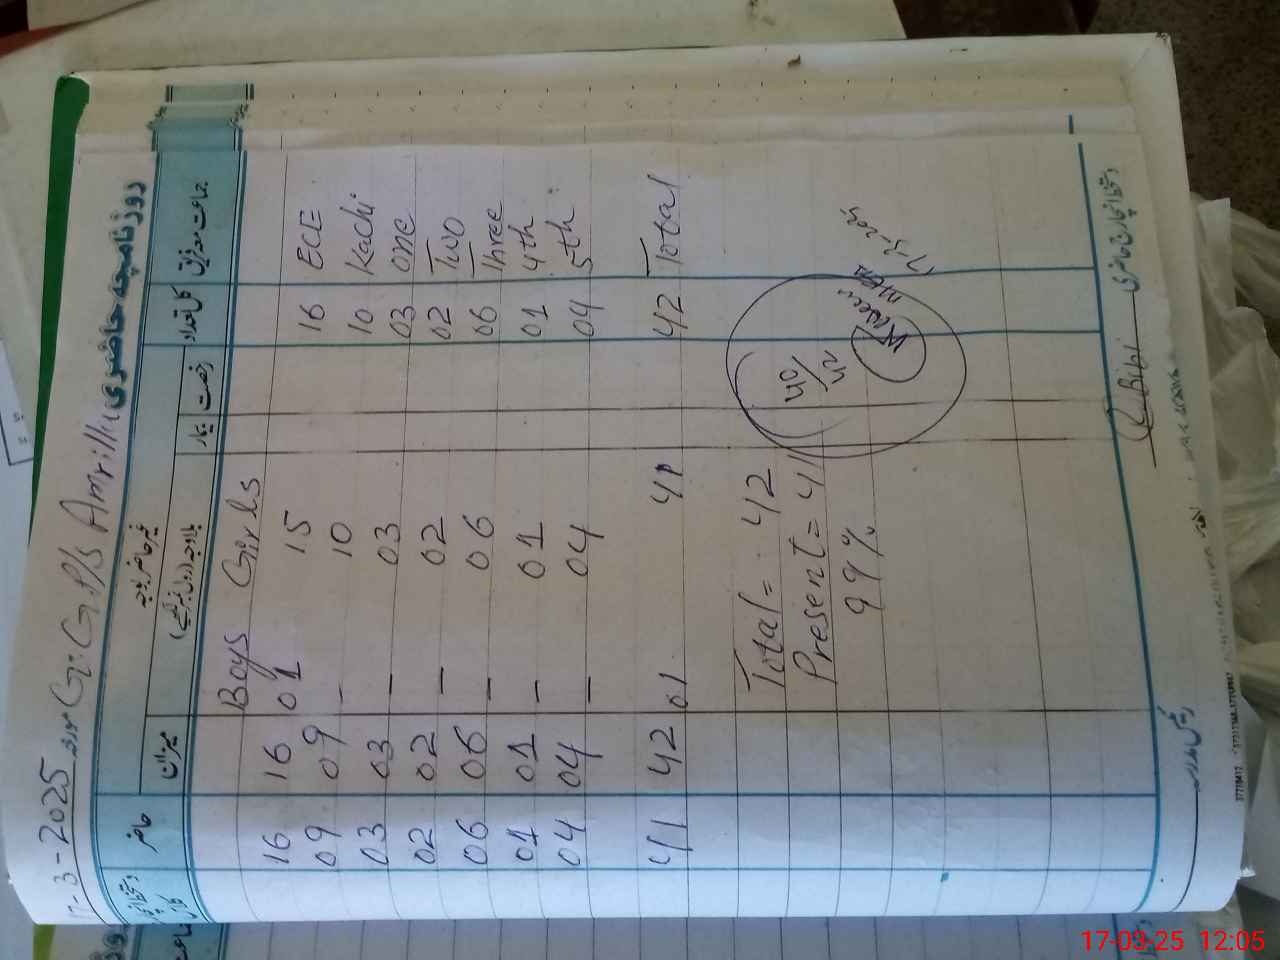 17-3-2025 مورخہ G.G.P/S Amrillu
روزنامچہ حاضری
جماعت معہ فریق کل تعداد رخصت بیمار غیر حاضر بلاوجہ میزان حاضر
Boys Girls
ECE 16 15 01 16 16
Kachi 10 10 - 09 09
one 03 03 - 03 03
Two 02 02 - 02 02
Three 06 06 - 06 06
4th 01 01 - 01 01
5th 04 04 - 04 04
Total 42 41 01 42 41
Total = 42
Present = 41
99%
40/42
Bibi
17-03-25 12:05